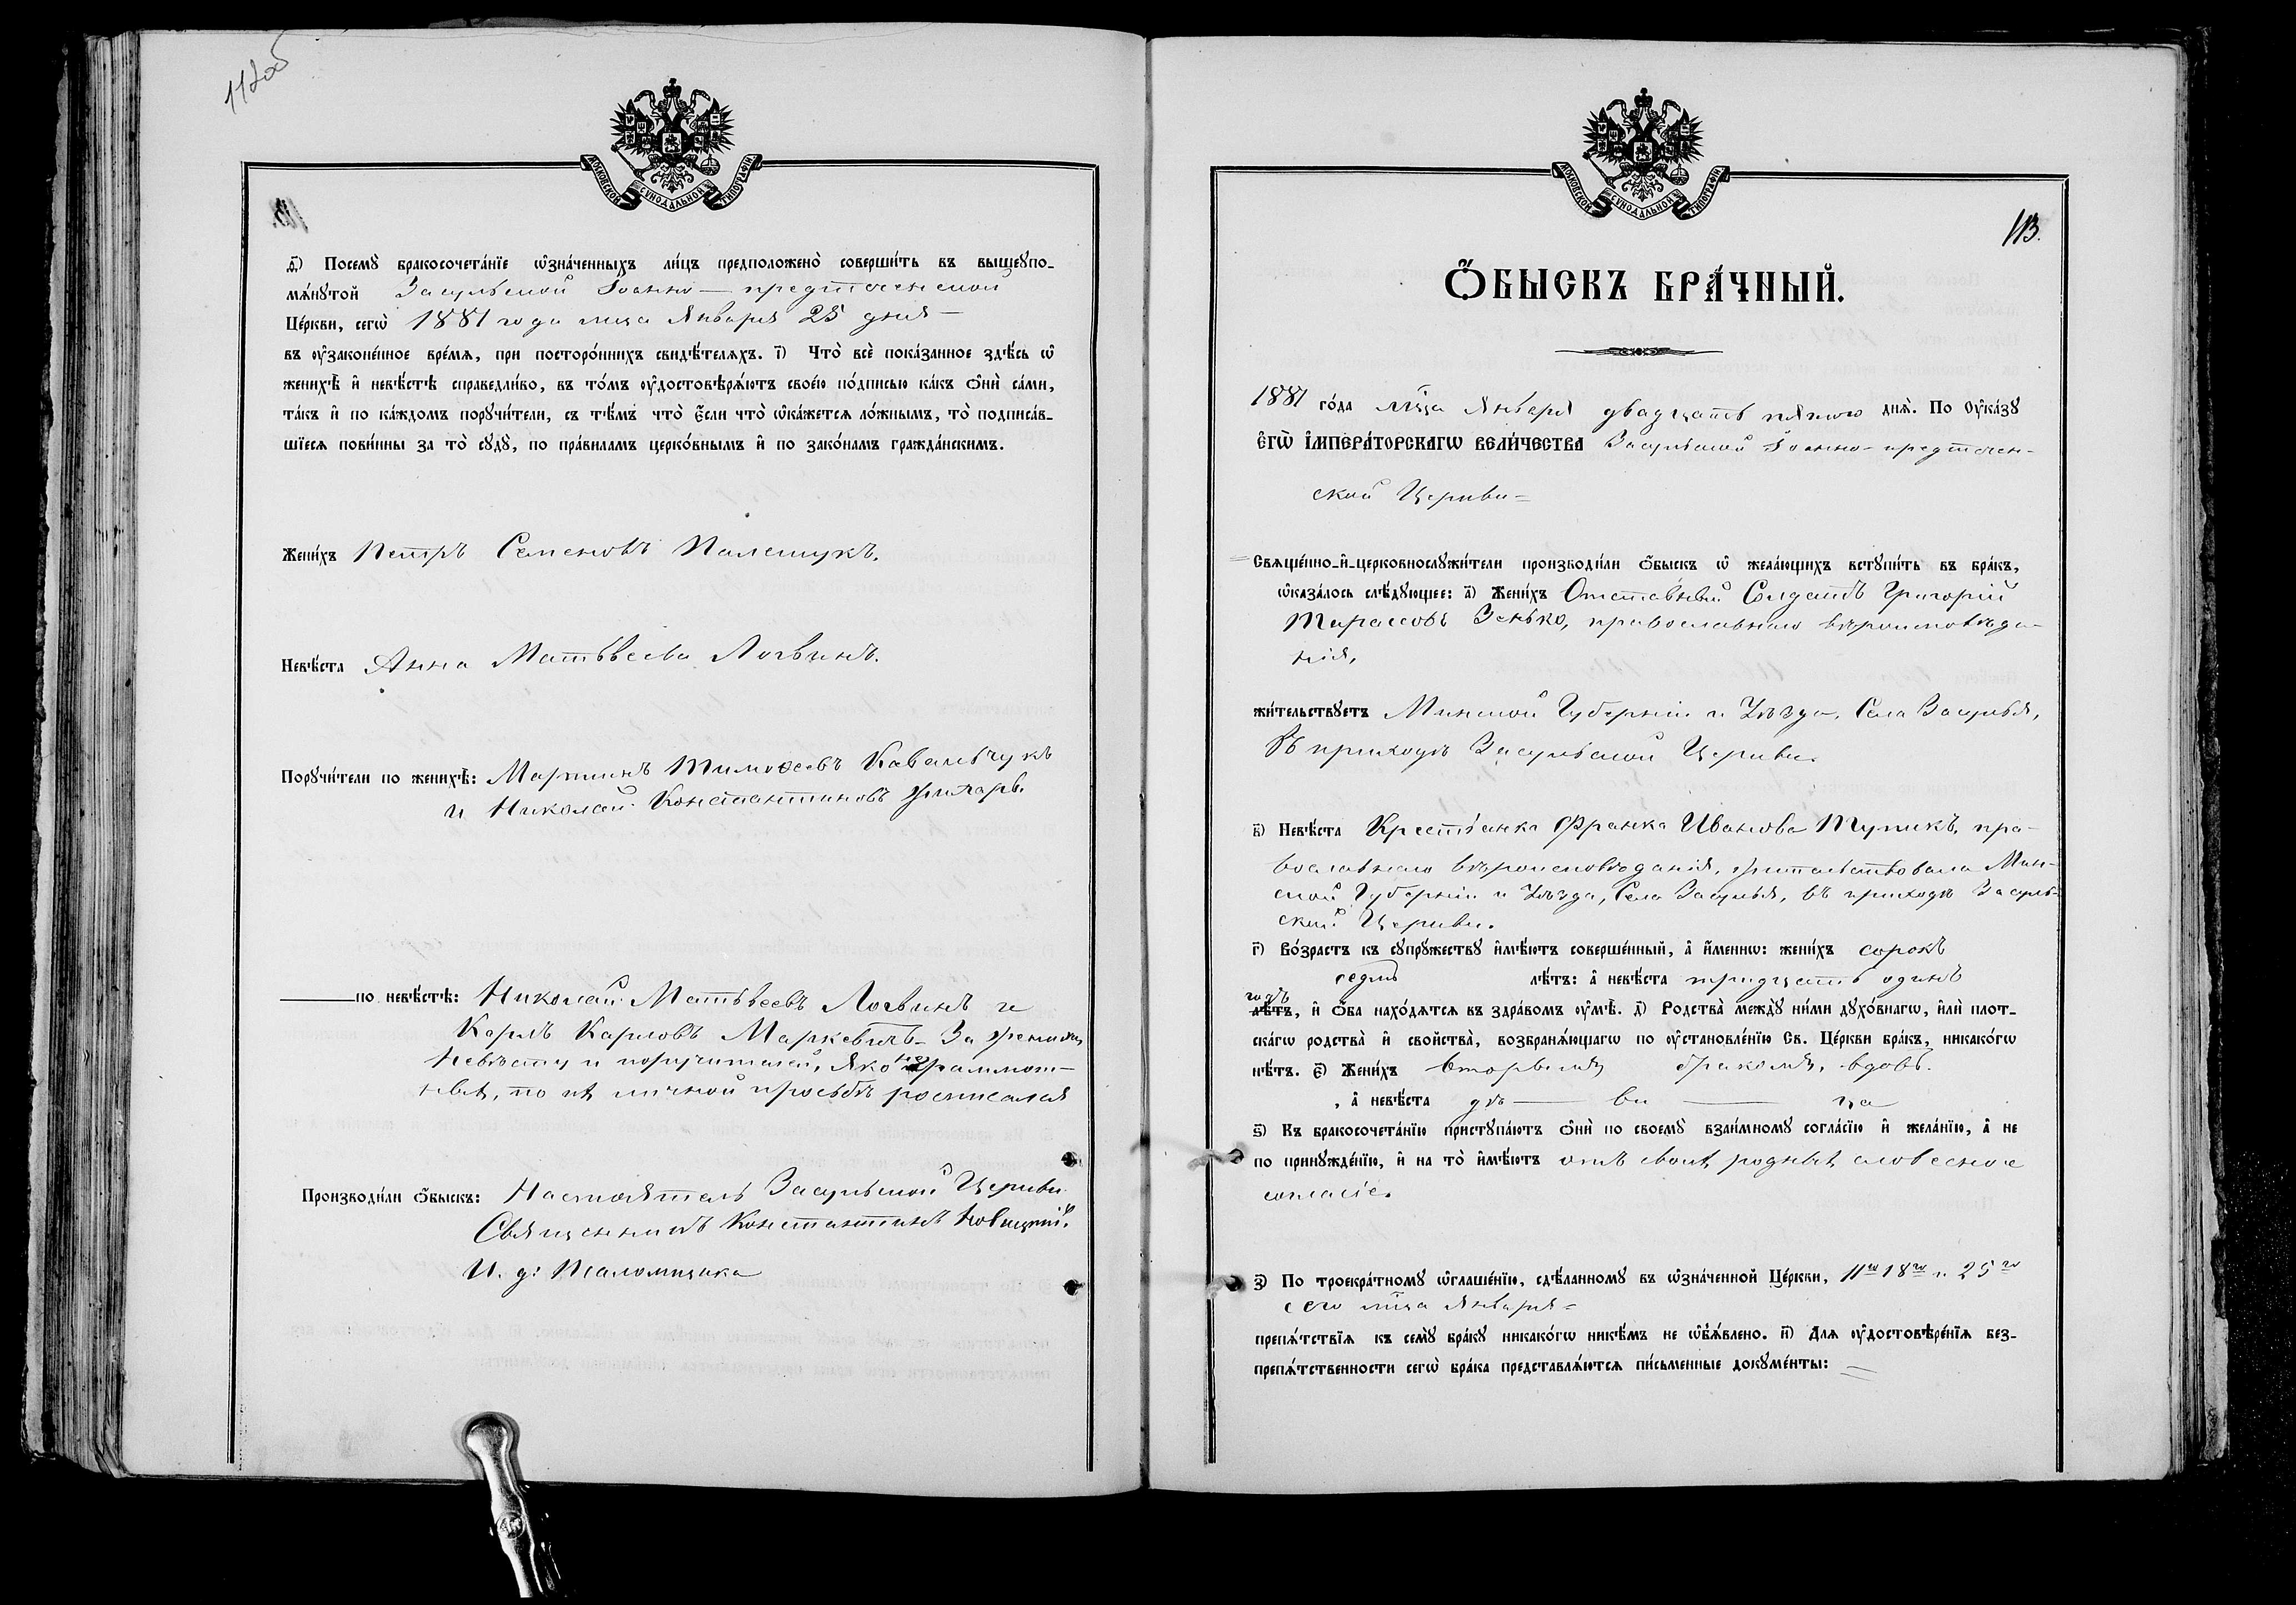 112об
МОСКОВСКОЙ СѴНОДАЛЬНОЙ ТИПОГРАФІИ
д҃) Посемꙋ бракосочета́нїе ѡ҆зна́ченныхъ ли́цъ предположено̀ соверши́ть въ вышеꙋпо-
мѧ́нꙋтой Засульской Іоанно-предтеченской
Це́ркви, сегѡ̀ 1881 года мца Января 25 дня
въ ᲂу҆зако́ненное вре́мѧ, при посторо́ннихъ свидѣ́телѧхъ. і҃) Что̀ всѐ пока́занное здѣ́сь ѡ҆
женихѣ̀ и҆ невѣ́стѣ справедли́во, въ то́мъ ᲂу҆достовѣрѧ́ютъ свое́ю по́дписью ка́къ ѻ҆нѝ са́ми,
та́къ и҆ по ка́ждомъ порꙋчи́тели, съ тѣ́мъ что̀ є҆́сли что̀ ѡ҆ка́жетсѧ ло́жнымъ, то̀ подписа́в-
шїесѧ пови́нны за то̀ сꙋдꙋ̀, по пра́виламъ церко́внымъ и҆ по зако́намъ гражда́нскимъ.
Жени́хъ Петръ Семеновъ Палешукъ.
Невѣ́ста Анна Матвѣева Логвинъ.
Порꙋчи́тели по женихѣ̀: Мартинъ Тимоѳеевъ Ковальчукъ
и Николай Константиновъ
по невѣ́стѣ: Николай Матвѣевъ Логвинъ и
Карлъ Карловъ Маркевичъ За жениха,
невѣсту и поручителей, яко неграммот-
ныя, по их личной просьбѣ росписался
Производи́ли ѻ҆́быскъ: Настоятель Засульской Церкви
Священникъ Константинъ Новицкій.
И. д: Псаломщика
МОСКОВСКОЙ СѴНОДАЛЬНОЙ ТИПОГРАФІИ
113.
Ѻ҆́БЫСКЪ БРА́ЧНЫЙ.
1881 го́да мца Января двадцать пятаго днѧ̀. По Оу҆ка́зꙋ
Є҆гѡ̀ І҆мпера́торскагѡ вели́чества Засульской Іоанно-предтечен-
ской Церкви
Свѧще́нно-и҆-церковнослꙋжи́тели производи́ли ѻ҆́быскъ ѡ҆ жела́ющихъ встꙋпи́ть въ бра́къ,
ѡ҆каза́лось слѣ́дꙋющее: а҃) Жени́хъ Отставный Солдатъ Григорій
Тарасовъ Зенько, православнаго вѣроисповѣда-
нія,
жи́тельствꙋетъ Минской Губерніи и Уѣзда, Села Засулья,
въ приходѣ Засульской Церкви.
в҃) Невѣ́ста Крестьянка Франка Иванова Тупикъ, пра-
вославнаго вѣроисповѣданія, жительствовала Мин-
ской Губерніи и Уѣзда, Села Засулья, въ приходѣ Засуль-
ской Церкви.
г҃) Во́зрастъ къ сꙋпрꙋ́жествꙋ и҆мѣ́ютъ соверше́нный, а҆ и҆́меннѡ: жени́хъ сорокъ
седмь лѣ́тъ: а҆ невѣ́ста тридцать одинъ
годъ
лѣ́тъ, и҆ ѻ҆́ба нахо́дѧтсѧ въ здра́вомъ ᲂу҆мѣ̀. д҃) Родства̀ междꙋ̀ ни́ми дꙋхо́внагѡ, и҆лѝ плот-
ска́гѡ родства̀ и҆ сво́йства, возбранѧ́ющагѡ по ᲂу҆становле́нїю Св. Це́ркви бра́къ, никако́гѡ
нѣ́тъ. є҃) Жени́хъ вторымъ бракомъ, вдовъ.
, а҆ невѣ́ста дѣ — ви — ца
ѕ҃) Къ бракосочета́нїю пристꙋпа́ютъ ѻ҆нѝ по своемꙋ̀ взаи́мномꙋ согла́сїю и҆ жела́нїю, а҆ не
по принꙋжде́нїю, и҆ на то̀ и҆мѣ́ютъ отъ своих родных словесное
согласіе.
з҃) По троекра́тномꙋ ѡ҆глаше́нїю, сдѣ́ланномꙋ въ ѡ҆зна́ченной Це́ркви, 11го 18го и 25го
сего мца Января
препѧ́тствїѧ къ семꙋ̀ бра́кꙋ никако́гѡ никѣ́мъ не ѡ҆б̾ѧ́влено. и҃) Длѧ ᲂу҆достовѣре́нїѧ без-
препѧ́тственности сегѡ̀ бра́ка представлѧ́ютсѧ пи́сьменные докꙋме́нты: